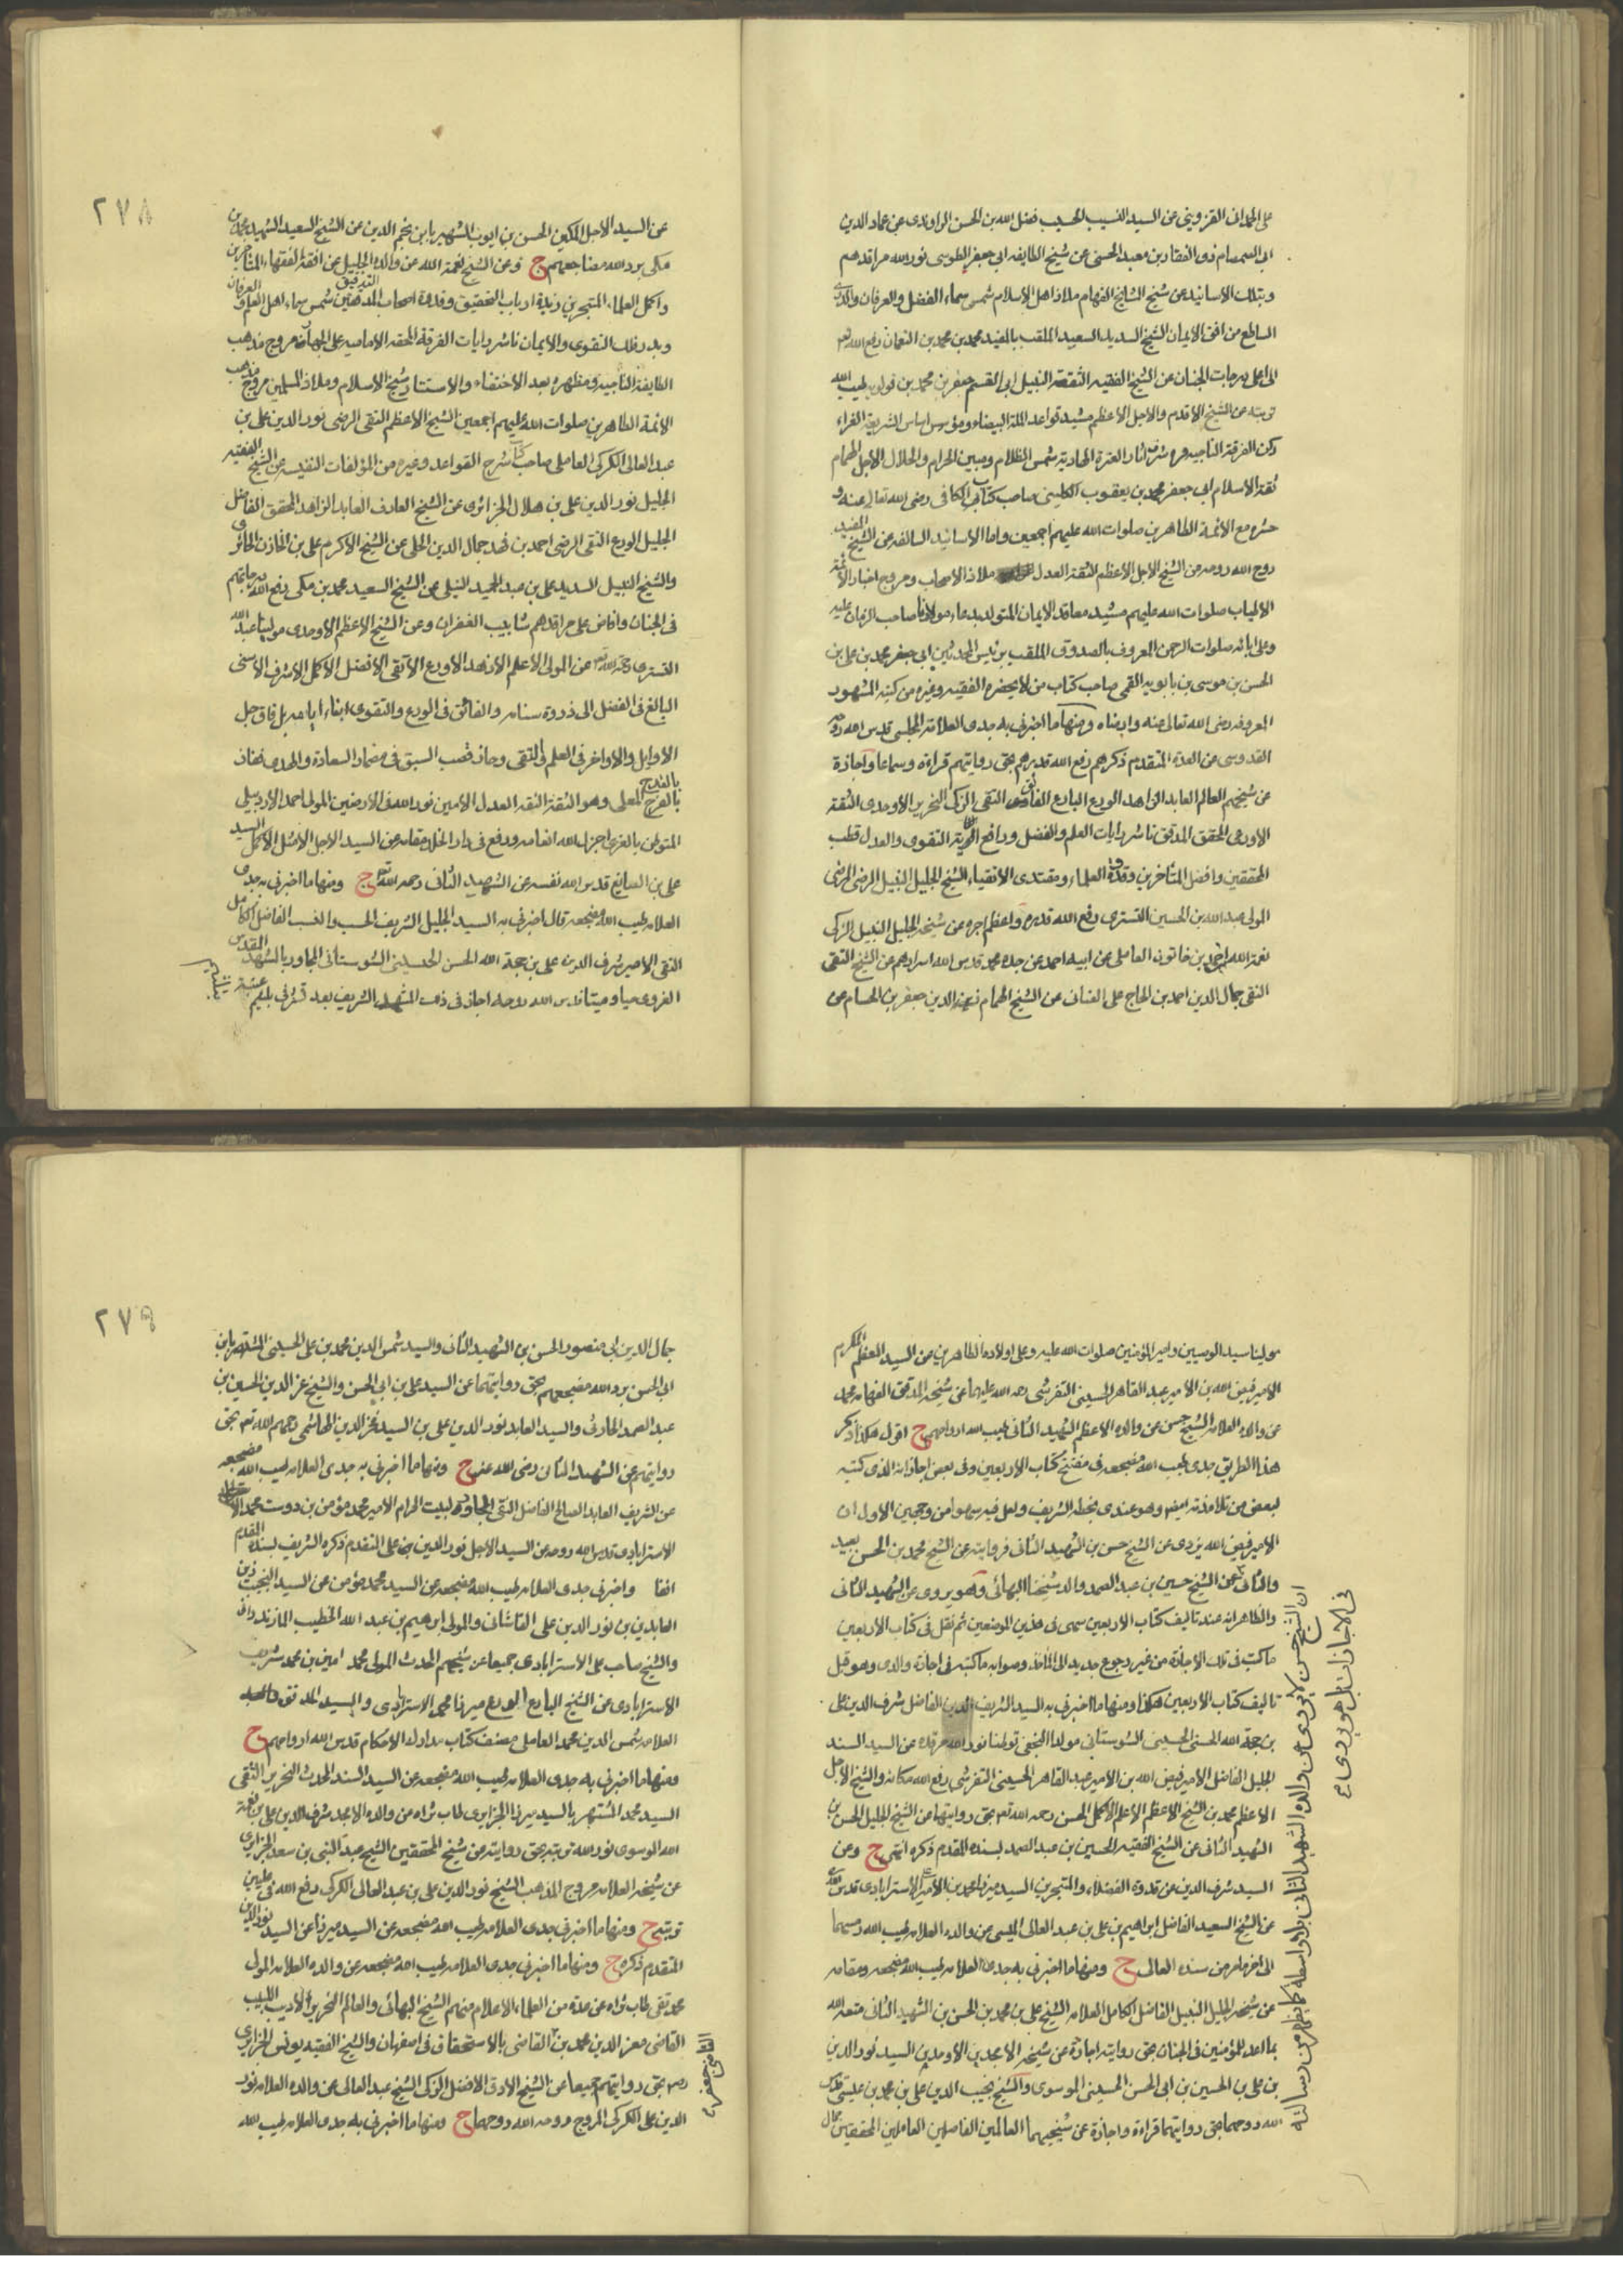 على الحمداني القزويني عن السيد النسيب الحسيب فضل الله بن الحسن الراوندي عن عماد الدين
ابي الصمصام ذي الفقار بن معبد الحسني عن شيخ الطايفه ابي جعفر الطوسي نور الله مراقدهم
وبتلك الاسانيد عن شيخ المشايخ الفهام ملاذ اهل الاسلام شمس سماء الفضل والعرفان والبدر
الساطع من افق الايمان الشيخ السديد السعيد الملقب بالمفيد محمد بن محمد بن النعمان رفع الله
الى اعلى درجات الجنان عن الشيخ الفقيه الثقة النبيل ابي القسم جعفر بن محمد بن قولويه طيب الله
تربته عن الشيخ الاقدم والاجل الاعظم مشيد قواعد الملة البيضاء ومؤسس اساس الشريعة الغراء
ركن الفرقة الناجيه اثار العترة الهادية شمس الظلام ومبين الحرام والحلال الاجل الهمام
ثقة الاسلام ابي جعفر محمد بن يعقوب الكليني صاحب كتاب الكافي رضي الله تعالى عنه و
حشره مع الائمة الطاهرين صلوات الله عليهم اجمعين واما الاسانيد السالفه عن الشيخ المفيد
روح الله روحه عن الشيخ الاجل الاعظم الثقة العدل ملاذ الاصحاب ومروج اخبار الائمة
الاطياب صلوات الله عليهم مشيد معاقد الايمان المتولد بدعاء مولانا صاحب الزمان عليه
وعلى ابائه صلوات الرحمن المعروف بالصدوق الملقب برئيس المحدثين ابي جعفر محمد بن علي بن
الحسن بن موسى بن بابويه القمي صاحب كتاب من لا يحضره الفقيه وغيره من كتبه المشهور
المعروفه رضي الله تعالى عنه وارضاه ومنها ما اخبرني به جدي العلامة المجلسي قدس الله روحه
القدوسي عن العدة المتقدم ذكرهم رفع الله قدرهم بحق روايتهم قراءة وسماعا واجازة
عن شيخهم العالم العابد الزاهد الورع البارع الفائق التقي الزكي النحرير الاوحدي الثقة
الاورعي المحقق المدقق ناشر رايات العلم والفضل ورافع الوية التقوى والعدل قطب
المحققين وافضل المتأخرين وقدوة العلماء ومقتدى الاتقياء الشيخ الجليل النبيل الرضي المرضي
المولى عبد الله بن الحسين التستري رفع الله قدره واعظم اجره عن شيخه الجليل النبيل الزكي
نعمة الله بن احمد بن خاتون العاملي عن ابيه احمد عن جده محمد قدس الله اسرارهم عن الشيخ التقي
النقي جمال الدين احمد بن الحاج علي العيناني عن الشيخ الهمام زين الدين جعفر بن الحسام عن
٢٧٨
عن السيد الاجل المكين الحسن بن ايوب الشهير بابن نجم الدين عن الشيخ السعيد الشهيد محمد بن
مكي برد الله مضاجعهم ح وعن الشيخ نعمة الله عن والده الجليل عن افقه الفقهاء المتاخرين
واكمل العلماء المتبحرين زبدة ارباب التحقيق وقدوة اصحاب التدقيق شمس سماء اهل العلم والعرفان
وبدر فلك التقوى والايمان ناشر رايات الفرقة المحقه الاماميه مروج مذهب
الطايفة الناجيه ومظهره بعد الاختفاء والاستتار شيخ الاسلام وملاذ المسلمين مروج مذهب
الائمة الطاهرين صلوات الله عليهم اجمعين الشيخ الاعظم التقي الرضي نور الدين علي بن
عبد العالي الكركي العاملي صاحب كتاب شرح القواعد وغيره من المؤلفات النفيسه عن الشيخ الفقيه
الجليل نور الدين علي بن هلال الجزائري عن الشيخ العارف العابد الزاهد المحقق الفاضل
الجليل الورع التقي الرضي احمد بن فهد جمال الدين الحلي عن الشيخ الاكرم علي بن الخازن الحائري
والشيخ النبيل السديد علي بن عبد الحميد النيلي عن الشيخ السعيد محمد بن مكي رفع الله درجاتهم
في الجنان وافاض على مراقدهم شابيب الغفران وعن الشيخ الاعظم الاوحدي مولينا عبد الله
التستري رحمه الله عن المولى الاعلم الازهد الاورع الاتقى الافضل الاكمل الاشرف الاسنى
البالغ في الفضل الى ذروة سنامه والفائق في الورع والتقوى ابناء ايامه بل فاق جل
الاوايل والاواخر في العلم والتقى وحاز قصب السبق في مضمار السعادة والهدى ففاز
بالقدح المعلى وهو الثقة الثقة العدل الامين نور الله في الارضين المولى احمد الاردبيلي
المتوطن بالغري اجزل الله انعامه ورفع في دار الخلد مقامه عن السيد الاجل الامثل الاكمل السيد
علي بن الصايغ قدس الله نفسه عن الشهيد الثاني رحمه الله ح ومنها ما اخبرني به جدي
العلامه طيب الله مضجعه قال اخبرني به السيد الجليل الشريف الحسب والنسب الفاضل الكامل
التقي الامير شرف الدين علي بن حجة الله الحسن الحسيني الشولستاني المجاور بالمشهد المقدس
الغروي حيا وميتا قدس الله روحه اجاز في ذلك المشهد الشريف بعد تشرفي بلثم عتبة
مولينا سيد الوصيين وامير المؤمنين صلوات الله عليه وعلى اولاده الطاهرين عن السيد المعظم المكرم
الامير فيض الله بن الامير عبد القاهر الحسيني التفرشي رحمة الله عليهما عن شيخه المدقق الفهامه محمد
عن والده العلامه الشيخ حسن عن والده الاعظم الشهيد الثاني طيب الله ارواحهم ح اقول هكذا ذكر
هذا الطريق جدي طيب الله مضجعه في مفتتح كتاب الاربعين وفي بعض اجازاته الذي كتبه
لبعض من تلامذته ايضا وهو عندي بخطه الشريف ولعل فيه سهوا من وجهين الاول ان
الامير فيض الله يروي عن الشيخ حسن بن الشهيد الثاني فروايته عن الشيخ محمد بن الحسن بعيد
والثاني عن الشيخ حسين بن عبد الصمد والد شيخنا البهائي وهو يروي عن الشهيد الثاني
والظاهر انه عند تاليف كتاب الاربعين سهى في هذين الموضعين ثم نقل في كتاب الاربعين
ما كتب في تلك الاجازة من غير رجوع جديد الى الماخذ وصوابه ما كتبه في اجازة والدي وهو قبل
تاليف كتاب الاربعين هكذا ومنها ما اخبرني به السيد الشريف الفاضل شرف الدين علي
بن حجة الله الحسني الحسيني الشولستاني مولدا النجفي توطنا نور الله مرقده عن السيد السند
الجليل الفاضل الامير فيض الله بن الامير عبد القاهر الحسيني التفرشي رفع الله مكانه والشيخ الاجل
الاعظم محمد بن الشيخ الاعظم الاعلم الاكمل الحسن رحمه الله بحق روايتهما عن الشيخ الجليل الحسن بن
الشهيد الثاني عن الشيخ الفقيه الحسين بن عبد الصمد بسنده المقدم ذكره انتهى ح وعن
السيد شرف الدين عن قدوة الفضلاء والمتبحرين السيد ميرزا محمد بن الامير الاسترابادي قدس
عن الشيخ السعيد الفاضل ابراهيم بن علي بن عبد العالي الميسي عن والده العلامه طيب الله رمسهما
الى اخر ما مر من سنده العالي ح ومنها ما اخبرني به جدي العلامه طيب الله مضجعه ومقامه
عن شيخه الجليل النبيل الفاضل الكامل العلامه الشيخ علي بن محمد بن الحسن بن الشهيد الثاني متعه الله
بما اعد للمؤمنين في الجنان بحق روايته اجازة عن شيخيه الامجدين الاوحدين السيد نور الدين
بن علي بن الحسين بن ابي الحسن الحسيني الموسوي والشيخ نجيب الدين علي بن محمد بن عيسى
الله روحهما بحق روايتهما قراءة واجازة عن شيخيهما العالمين الفاضلين العاملين المحققين جمال
ان الشيخ حسن لا يروي عن والده الشهيد الثاني بلا واسطه كما يظهر من رسالته
في الاجازات بل هو يروي
٢٧٩
جمال الدين ابي منصور الحسن بن الشهيد الثاني والسيد شمس الدين محمد بن علي الحسيني المشتهر بابن
ابي الحسن برد الله مضجعهم بحق روايتهما عن السيد علي بن ابي الحسن والشيخ عز الدين الحسين بن
عبد الصمد الحارثي والسيد العابد نور الدين علي بن السيد فخر الدين الهاشمي رحمهم الله بحق
روايتهم عن الشهيد الثاني رضي الله عنه ح ومنها ما اخبرني به جدي العلامه طيب الله مضجعه
عن الشريف العابد الصالح الفاضل التقي المجاور لبيت الحرام الامير محمد مؤمن بن دوست محمد
الاسترابادي قدس الله روحه عن السيد الاجل نور الدين بن علي المتقدم ذكره الشريف بسنده المقدم
انفا واخبرني جدي العلامه طيب الله مضجعه عن السيد محمد مؤمن عن السيد النجيب زين
العابدين بن نور الدين علي القاشاني والمولى ابرهيم بن عبد الله الخطيب المازندراني
والشيخ صاحب علي الاسترابادي جميعا عن شيخهم المحدث المولى محمد امين بن محمد شريف
الاسترابادي عن الشيخ البارع الورع ميرزا محمد الاسترابادي والسيد المدقق
العلامه شمس الدين محمد العاملي مصنف كتاب مدارك الاحكام قدس الله ارواحهم ح
ومنها ما اخبرني به جدي العلامه طيب الله مضجعه عن السيد السند المحدث النحرير التقي
السيد محمد المشتهر بالسيد ميرزا الجزايري طاب ثراه عن والده الامجد شرف الدين علي بن نعمة
الله الموسوي نور الله تربته بحق روايته عن شيخ المحققين الشيخ عبد النبي بن سعد الجزايري
عن شيخه العلامه مروج المذهب الشيخ نور الدين علي بن عبد العالي الكركي رفع الله في عليين
ح ومنها ما اخبرني جدي العلامه طيب الله مضجعه عن السيد ميرزا عن السيد نور الدين
المتقدم ذكره ح ومنها ما اخبرني جدي العلامه طيب الله مضجعه عن والده العلامه المولى
محمد تقي طاب ثراه عن عدة من العلماء الاعلام منهم الشيخ البهائي والعالم النحرير الاديب اللبيب
القاضي معز الدين محمد بن القاضي بالاستحقاق في اصفهان والشيخ الفقيه يونس الجزايري
بحق روايتهم جميعا عن الشيخ الادق الافضل الزكي الشيخ عبد العالي عن والده العلامه نور
الدين علي الكركي المروج روح الله روحهما ح ومنها ما اخبرني به جدي العلامه طيب الله
القاضي جعفر